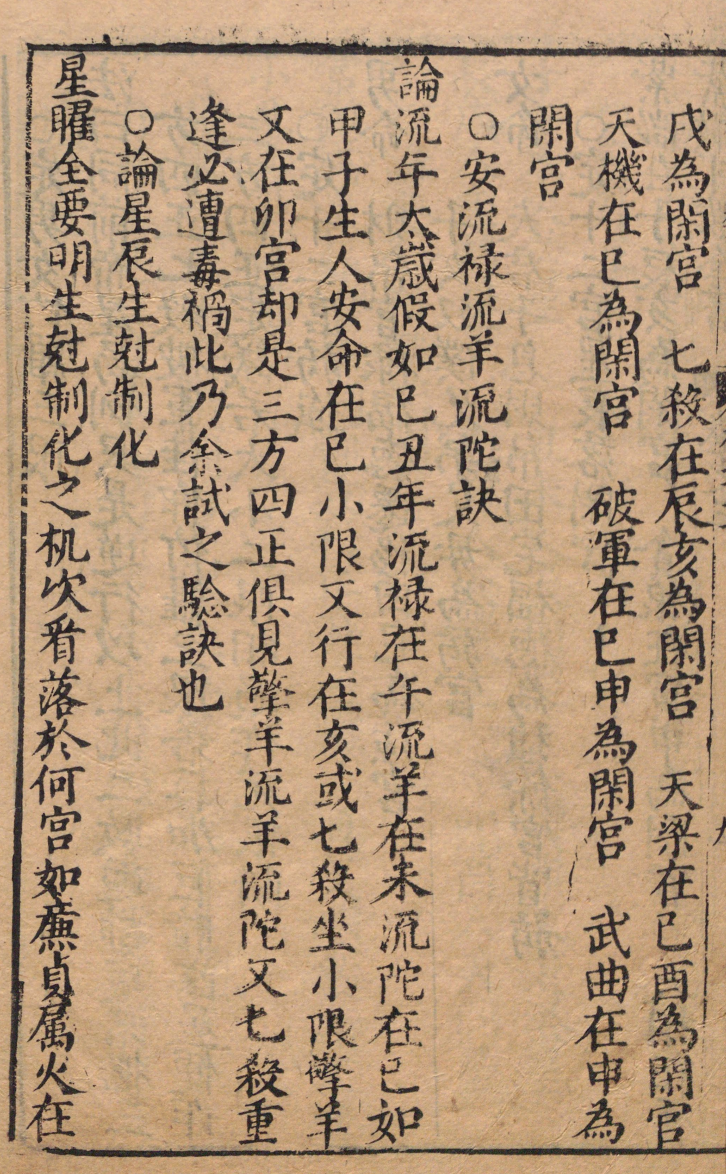 戌為閑宫　七殺在辰亥為閑宫　天梁在已酉為閑宫
天機在巳為閑宫　破軍在巳申為閑宫　武曲在申為
閑宫
○安流禄流羊流陀訣
論流年太歲假如巳丑年流禄在午流羊在未流陀在巳如
甲子生人安命在巳小限又行在亥或七殺坐小限擎羊
又在卯宫却是三方四正俱見擎羊流羊流陀又七殺重
逢必遭毒禍此乃余試之驗訣也
○論星辰生尅制化
星曜全要明生尅制化之机次看落於何宫如廉貞属火在